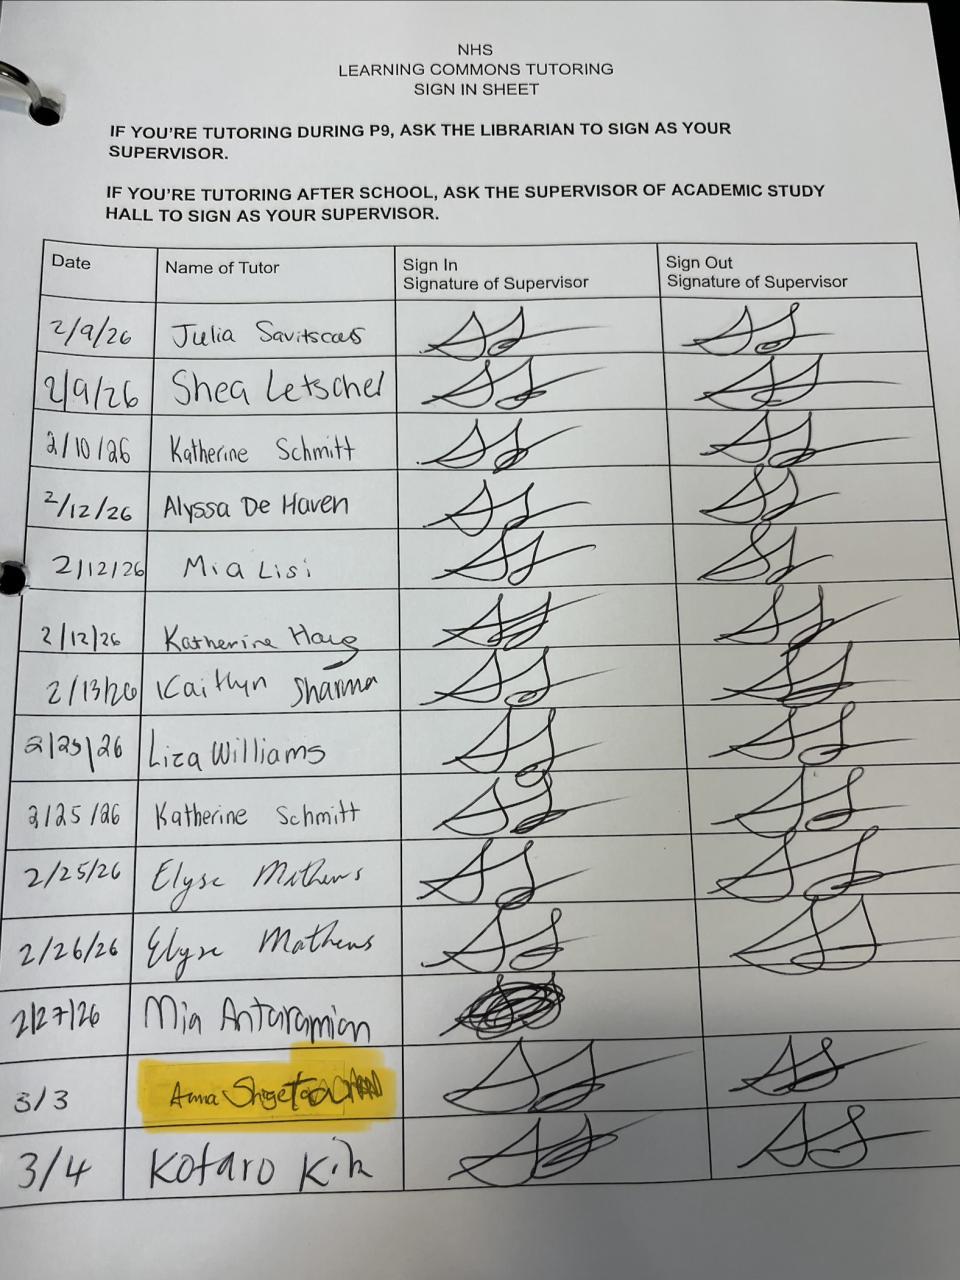 NHS
LEARNING COMMONS TUTORING
SIGN IN SHEET
IF YOU'RE TUTORING DURING P9, ASK THE LIBRARIAN TO SIGN AS YOUR
SUPERVISOR.
IF YOU'RE TUTORING AFTER SCHOOL, ASK THE SUPERVISOR OF ACADEMIC STUDY
HALL TO SIGN AS YOUR SUPERVISOR.
Date Name of Tutor Sign In Signature of Supervisor Sign Out Signature of Supervisor
2/9/26 Julia
2/9/26 Shea Letschel
2/10/26 Katherine Schmitt
2/12/26 Alyssa De Haven
2/12/26 Mia Lisi
2/12/26 Katherine
2/13/26 Kaitlyn Sharma
2/25/26 Liza Williams
2/25/26 Katherine Schmitt
2/25/26 Elyse Mathews
2/26/26 Elyse Mathews
2/27/26 Mia Antaramian
3/3 Anna
3/4 Kotaro